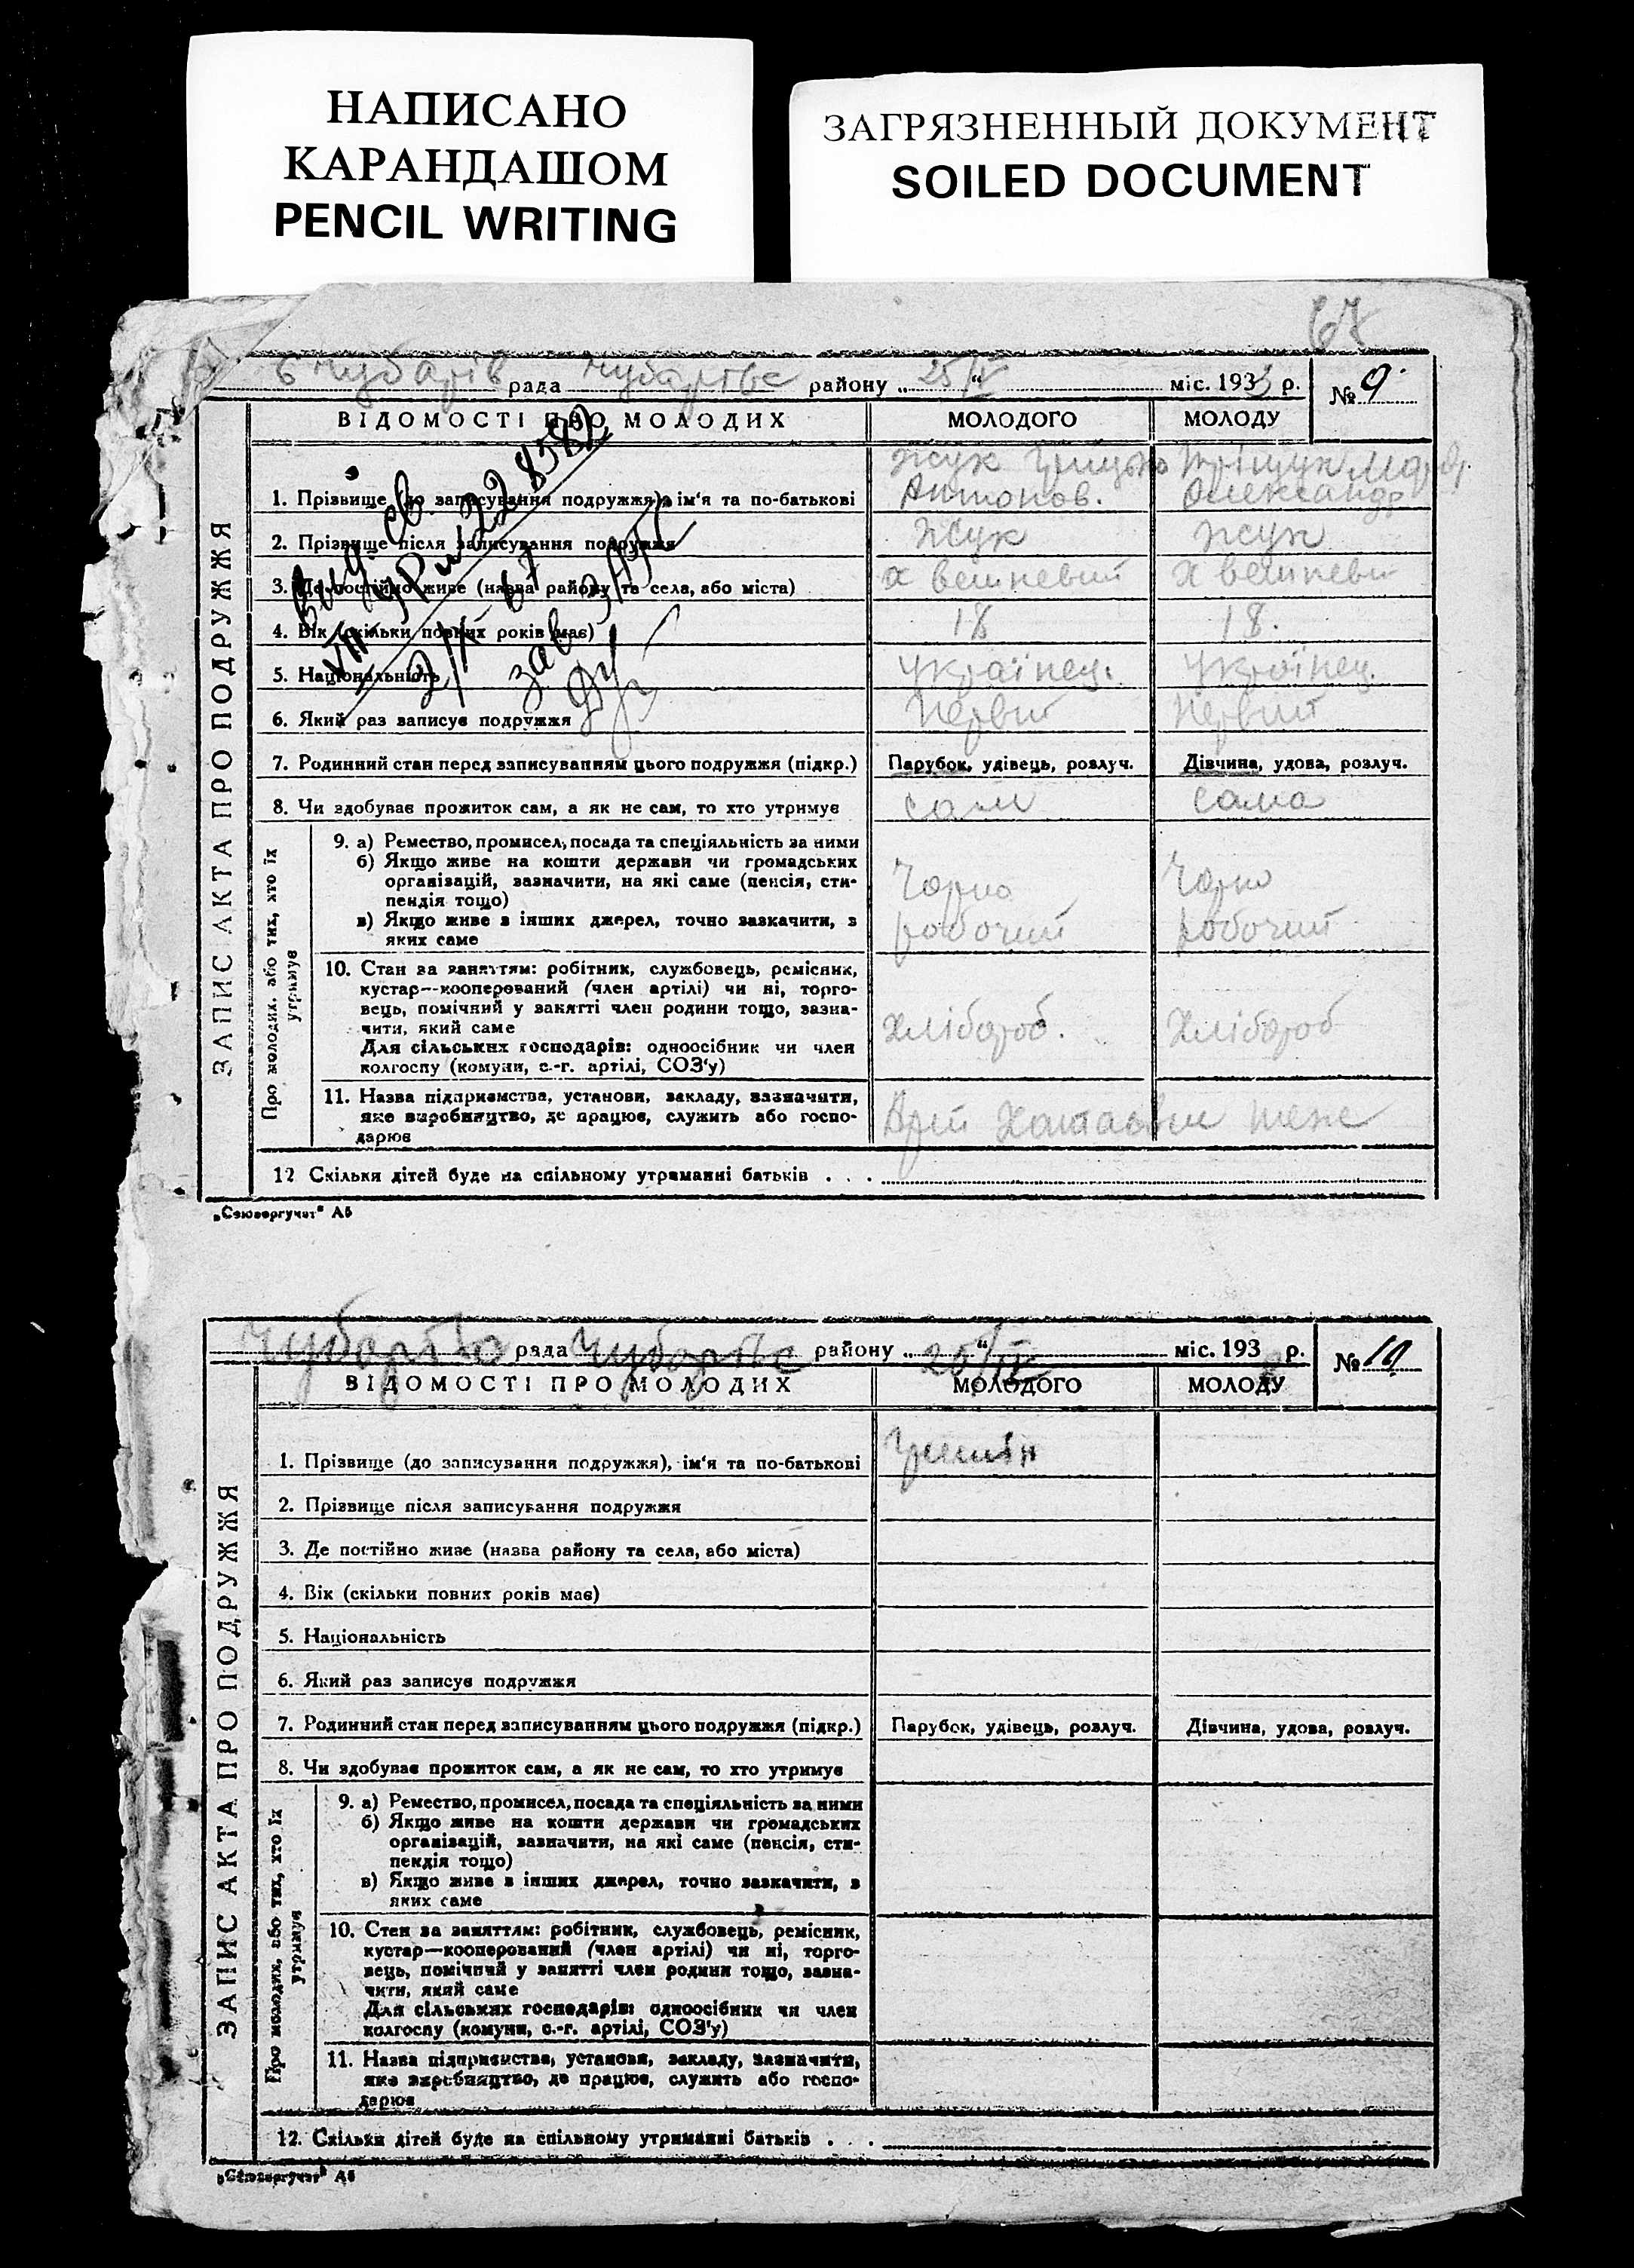 НАПИСАНО
КАРАНДАШОМ
PENCIL WRITING
ЗАГРЯЗНЕННЫЙ ДОКУМЕНТ
SOILED DOCUMENT
67
рада району „25/IV“ міс. 1933 р. № 9
ВІДОМОСТІ ПРО МОЛОДИХ МОЛОДОГО МОЛОДУ
ЗАПИС АКТА ПРО ПОДРУЖЖЯ
1. Прізвище (до записування подружжя), ім'я та по-батькові
Жук Грицько
Антонов.
Александр
2. Прізвище після записування подружжя Жук Жук
3. Де постійно живе (назва району та села, або міста)
4. Вік (скільки повних років має) 18 18.
5. Національність українец. українец.
6. Який раз записує подружжя Первий Первий
7. Родинний стан перед записуванням цього подружжя (підкр.) Парубок, удівець, розлуч. Дівчина, удова, розлуч.
8. Чи здобуває прожиток сам, а як не сам, то хто утримує сам сама
Про молодих, або тих, хто їх утримує
9. а) Ремество, промисел, посада та спеціяльність за ними
б) Якщо живе на кошти держави чи громадських
організацій, зазначити, на які саме (пенсія, сти-
пендія тощо)
в) Якщо живе з інших джерел, точно зазначити, з
яких саме
Чорно Чорно
робочий робочий
10. Стан за заняттям: робітник, службовець, ремісник,
кустар—кооперований (член артілі) чи ні, торго-
вець, помічний у занятті член родини тощо, зазна-
чити, який саме
Для сільських господарів: одноосібник чи член
колгоспу (комуни, с.-г. артілі, СОЗ'у)
Хлібороб. Хлібороб
11. Назва підприємства, установи, закладу, зазначити,
яке виробництво, де працює, служить або госпо-
дарює
12 Скільки дітей буде на спільному утриманні батьків . . .
Вид. св.
VII УР № 228582
2/IX-67
зав ЗАГС
„Союзоргучот“ А5
рада району „26/IV“ міс. 193 р. № 10
ВІДОМОСТІ ПРО МОЛОДИХ МОЛОДОГО МОЛОДУ
ЗАПИС АКТА ПРО ПОДРУЖЖЯ
1. Прізвище (до записування подружжя), ім'я та по-батькові
2. Прізвище після записування подружжя
3. Де постійно живе (назва району та села, або міста)
4. Вік (скільки повних років має)
5. Національність
6. Який раз записує подружжя
7. Родинний стан перед записуванням цього подружжя (підкр.) Парубок, удівець, розлуч. Дівчина, удова, розлуч.
8. Чи здобуває прожиток сам, а як не сам, то хто утримує
Про молодих, або тих, хто їх утримує
9. а) Ремество, промисел, посада та спеціяльність за ними
б) Якщо живе на кошти держави чи громадських
організацій, зазначити, на які саме (пенсія, сти-
пендія тощо)
в) Якщо живе з інших джерел, точно зазначити, з
яких саме
10. Стан за заняттям: робітник, службовець, ремісник,
кустар—кооперований (член артілі) чи ні, торго-
вець, помічний у занятті член родини тощо, зазна-
чити, який саме
Для сільських господарів: одноосібник чи член
колгоспу (комуни, с.-г. артілі, СОЗ'у)
11. Назва підприємства, установи, закладу, зазначити,
яке виробництво, де працює, служить або госпо-
дарює
12. Скільки дітей буде на спільному утриманні батьків . . .
„Союзоргучот“ А5